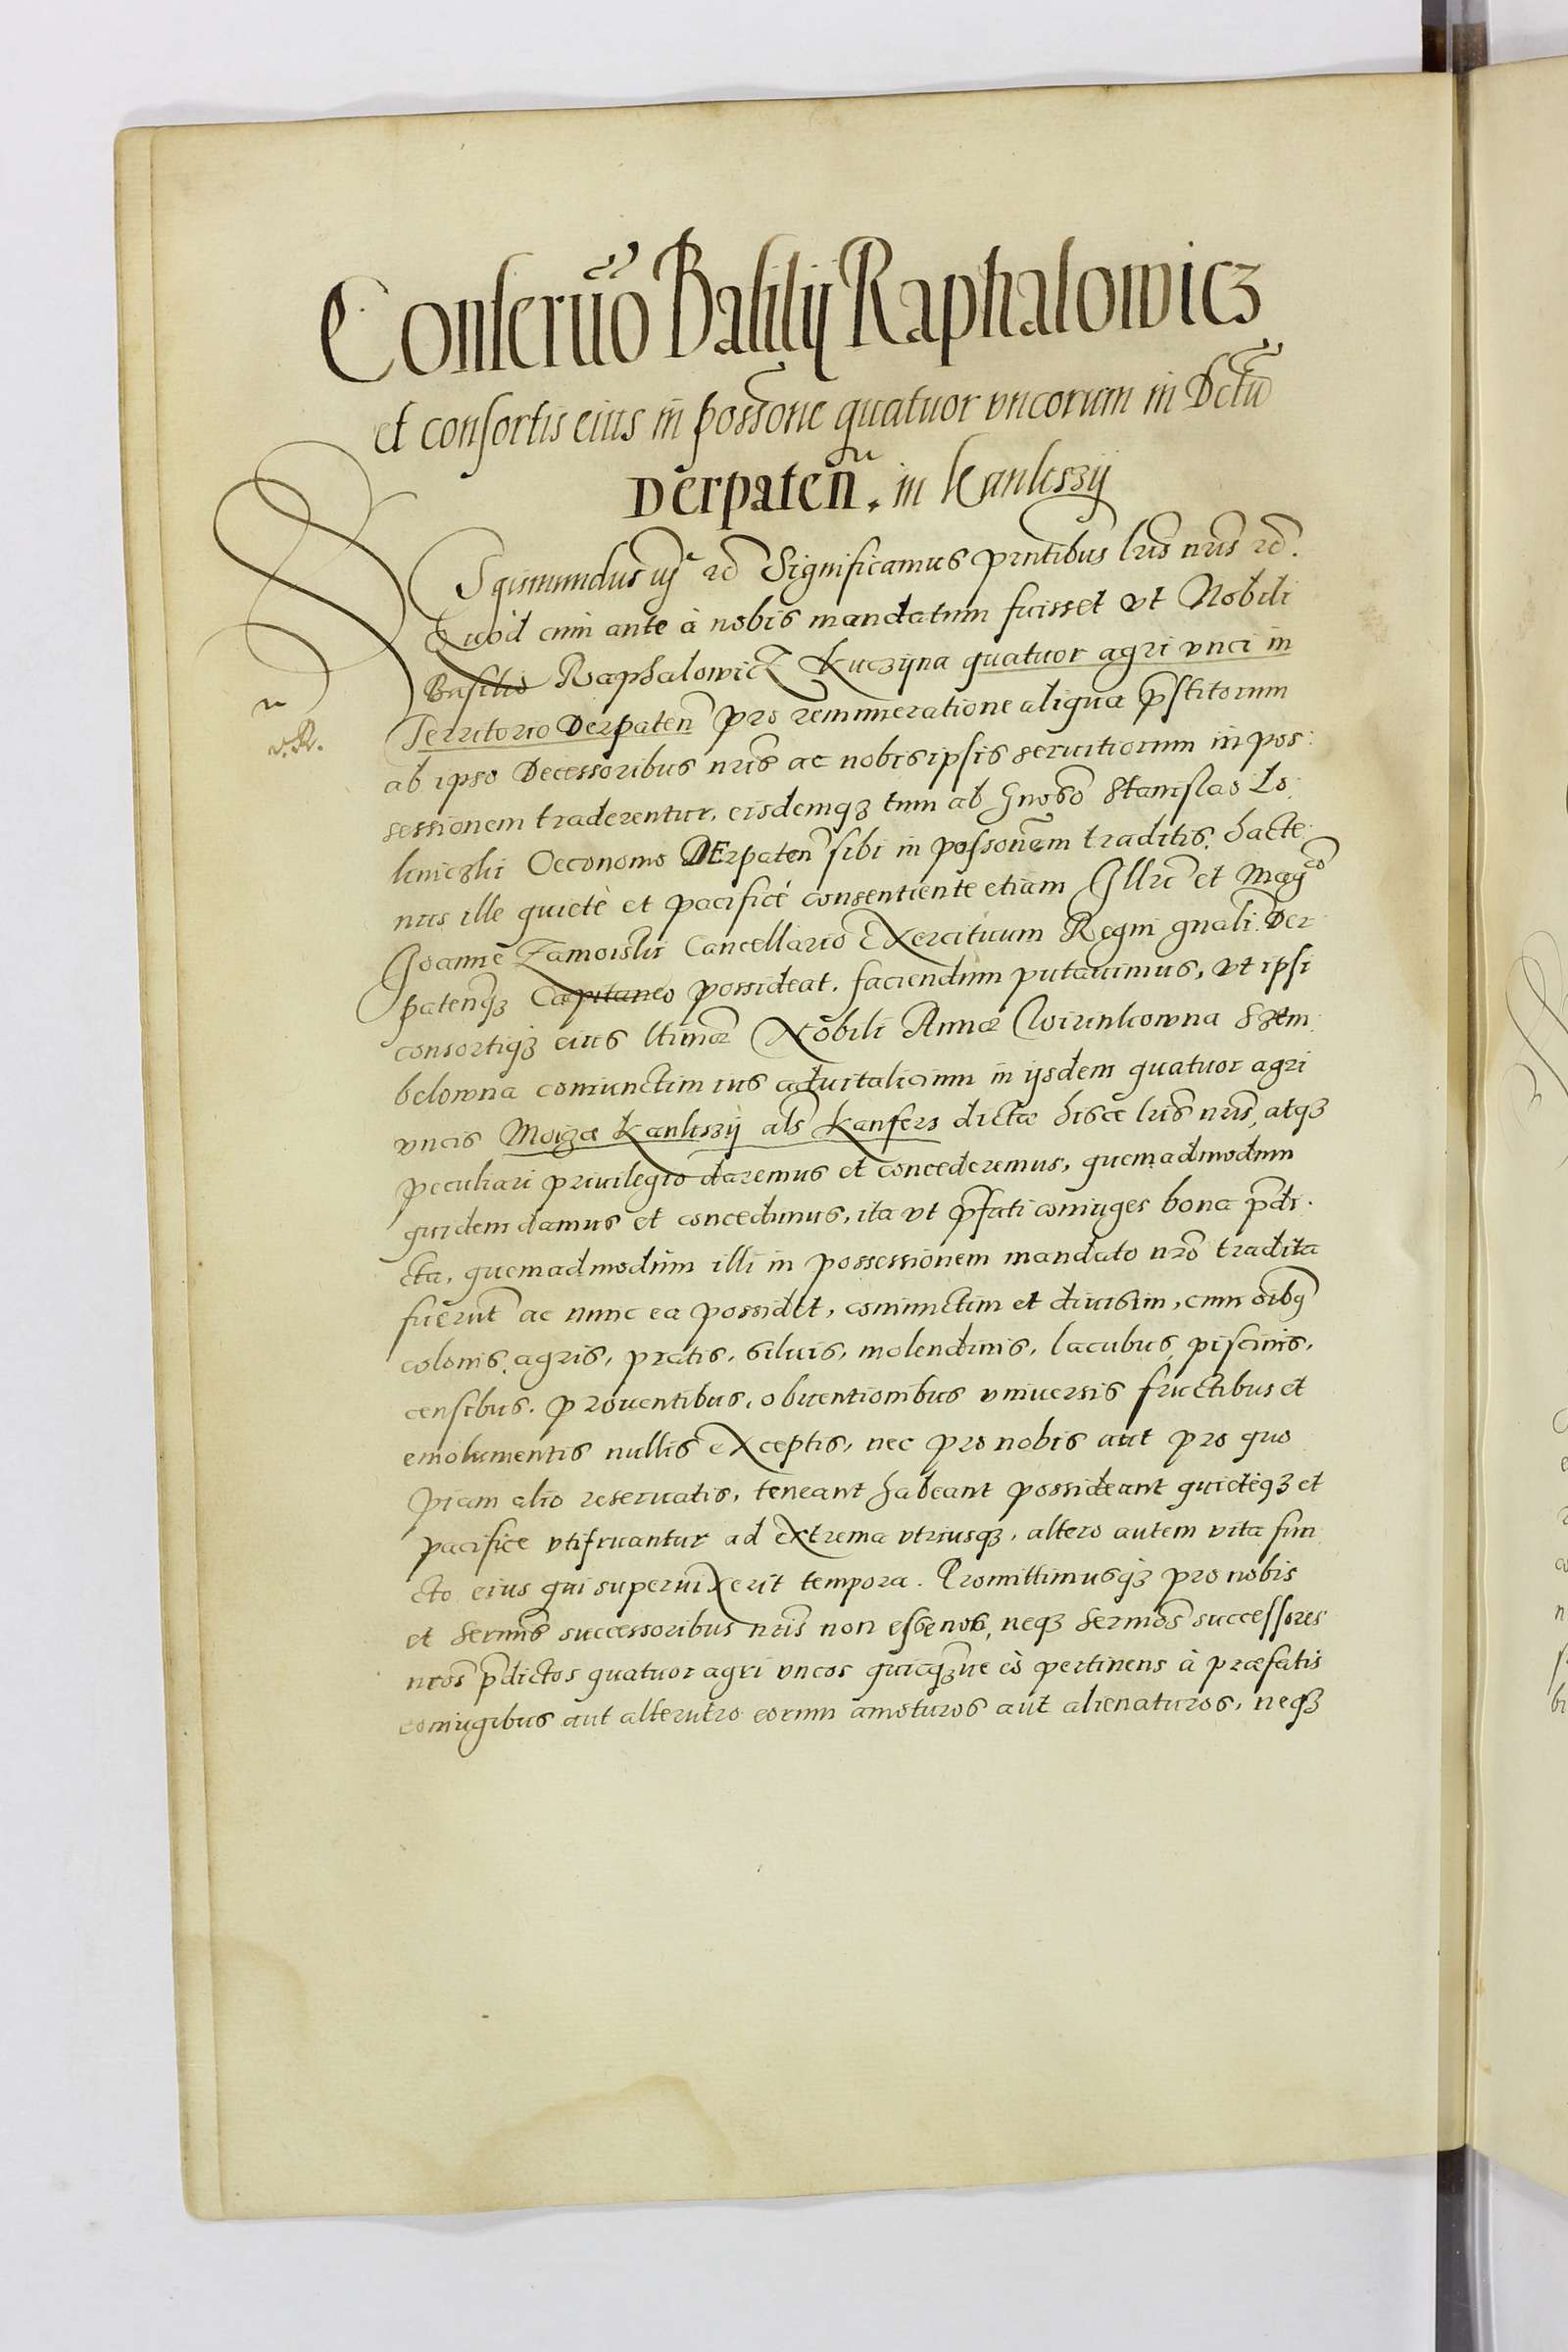 Conseruo Basilij Raphalowicz
et consortis eius in possone quatuor vncorum in Dctu
Derpaten. in Kankszij
Sgismundus iij rc Significamus pntibus lris nris rc.
Quod cum ante à nobis mandatum fuisset vt Nobili
Basilio Raphalowicz Kuczijna quatuor agri vnci in
Territorio Derpaten pro remuneratione aliqua pstitorum
v. R.
ab ipso Decessoribus nris ac nobis ipsis seruitiorum in pos:
sessionem traderentur, eisdemqz tum ab Gnoso Stanislao Lo
kniczki Oeconomo DErpaten sibi in possonem traditis, hacte
nus ille quietè et pacificé consentiente etiam Illri et Magco
Joanne Zamoiskii Cancellario Exercituum Regni gnali Der
patenqz Capitaneo possideat. faciendum putauimus, vt ipsi
consortiqz eius ltimæ Nobili Annæ Cwirinkowna Szem
belowna coniunctim ius aduitalicium in ijsdem quatuor agri
vncis Moiza Kankszij als Kanfers dictæ hisce lris nris, atqz
peculiari priuilegio daremus et concederemus, quemadmodum
quidem damus et concedimus, ita vt pfati coniuges bona pdi.
cta, quemadmodum illi in possessionem mandato nro tradita
fuerut ac nunc ea possidet, coniunctim et diuisim, cum oibq
colonis, agris, pratis, siluis, molendinis, lacubus, piscinis,
censibus. prouentibus, obuentionibus vniuersis fructibus et
emolumentis nullis exceptis, nec pro nobis aut pro quo
piam alio reseruatis, teneant habeant possideant quieteqz et
pacifice vtifruantur ad extrema vtriusqz, altero autem vita fun
cto eius qui superuixerit tempora. Promittimusqz pro nobis
et Sermis successoribus nris non esse nos, neqz Sermos successores
nros pdictos quatuor agri vncos quicqzue eò pertinens à præfatis
coniugibus aut alterutro eorum amoturos aut alienaturos, neqz